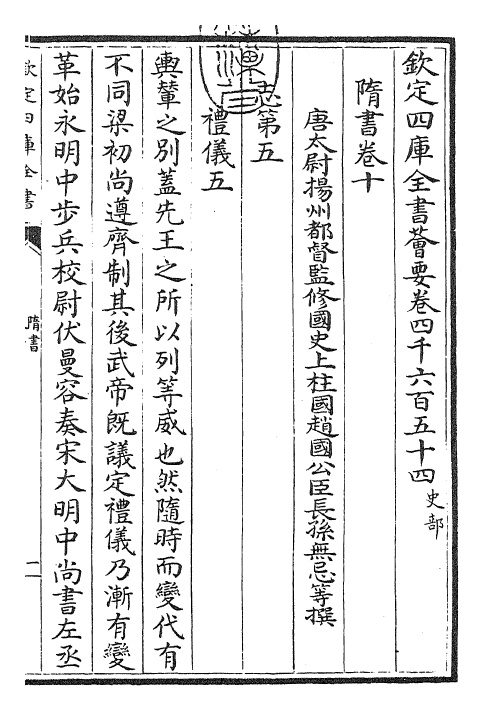 欽定四庫全書薈要卷四千六百五十四史部
隋書卷十
唐太尉揚州都督監修國史上柱國趙國公臣長孫無忌等撰
志第五
禮儀五
輿輦之別蓋先王之所以列等威也然隨時而變代有
不同梁初尚遵齊制其後武帝既議定禮儀乃漸有變
革始永明中步兵校尉伏曼容奏宋大明中尚書左丞
欽定四庫全書
隋書